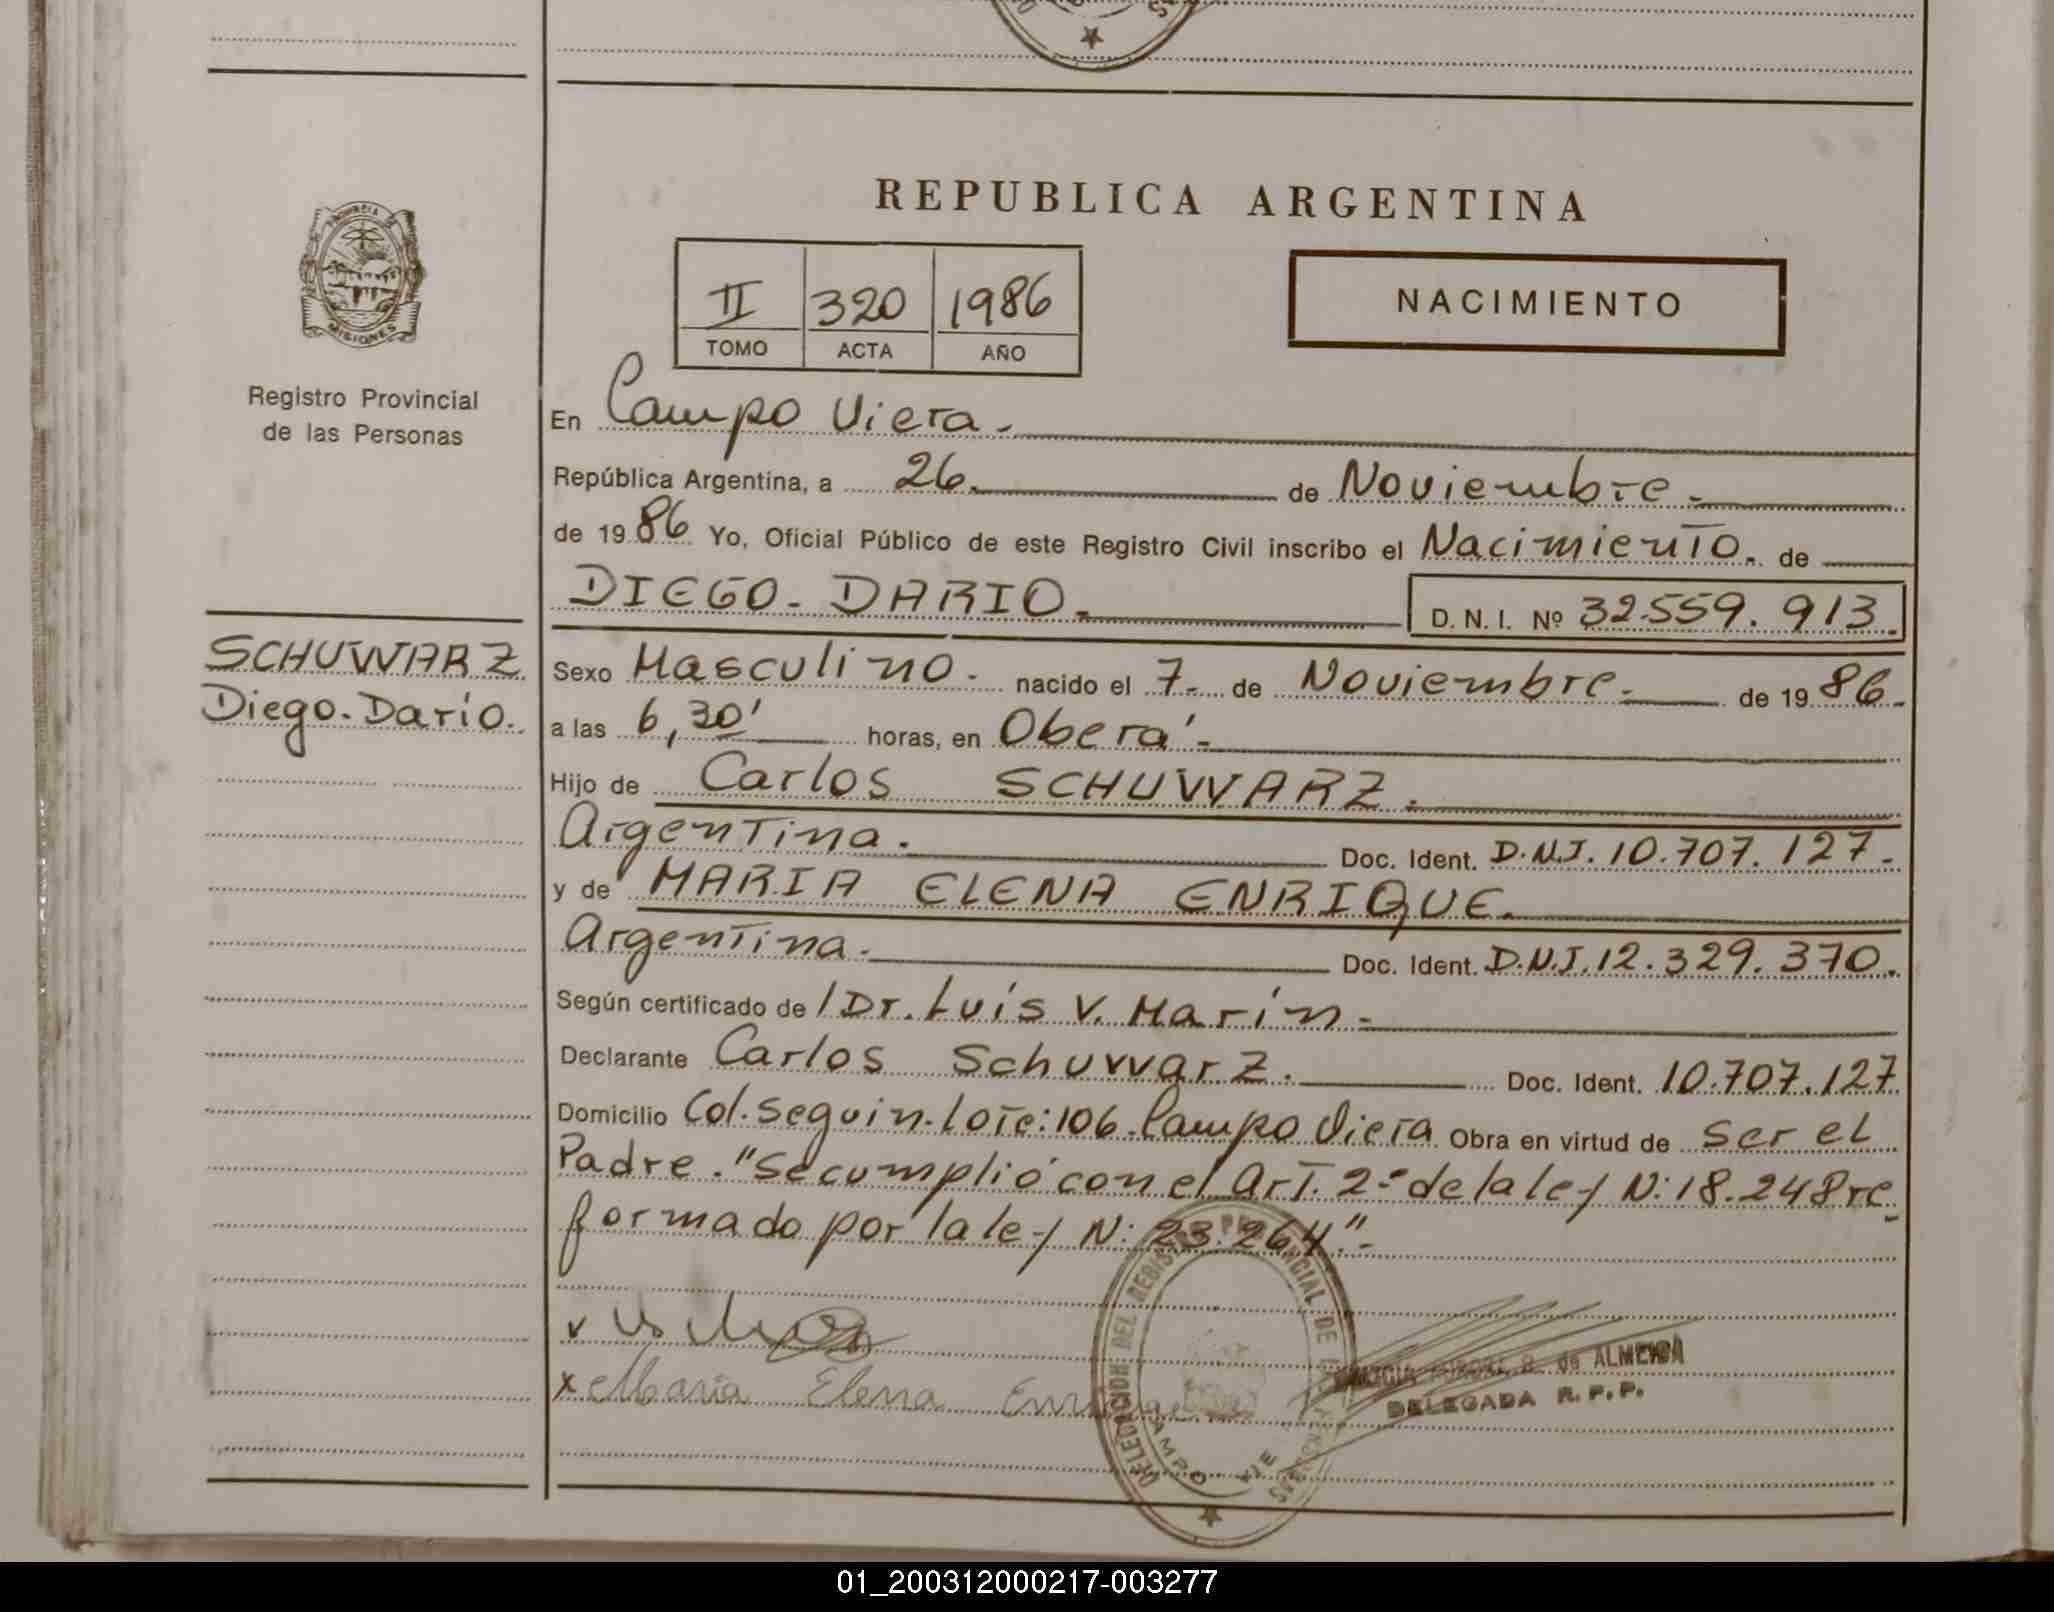 REPUBLICA ARGENTINA
PROVINCIA DE
MISIONES
Registro Provincial
de las Personas
II 320 1986
TOMO ACTA AÑO
NACIMIENTO
En Campo Viera.
República Argentina, a 26. de Noviembre.
de 1986 Yo, Oficial Público de este Registro Civil inscribo el Nacimiento. de
DIEGO-DARIO.
D. N. I. Nº 32.559.913.
SCHUWARZ
Diego-Dario.
Sexo Masculino. nacido el 7. de Noviembre. de 1986.
a las 6,30' horas, en Oberá.
Hijo de Carlos SCHUWARZ.
Argentina. Doc. Ident. D.N.I. 10.707.127.
y de MARIA ELENA ENRIQUE.
Argentina. Doc. Ident. D.N.I. 12.329.370.
Según certificado de / Dr. Luis V. Marín.
Declarante Carlos Schuwarz. Doc. Ident. 10.707.127
Domicilio Col. Seguin. Lote: 106. Campo Viera Obra en virtud de ser el
Padre. "Se cumplió con el Art. 2º de la ley N: 18.248 re
formado por la ley N: 23.264".
x Maria Elena Enrique
DELEGACION DEL REGISTRO PROVINCIAL DE LAS PERSONAS
CAMPO VIERA
de ALMEIDA
DELEGADA R.P.P.
01_200312000217-003277